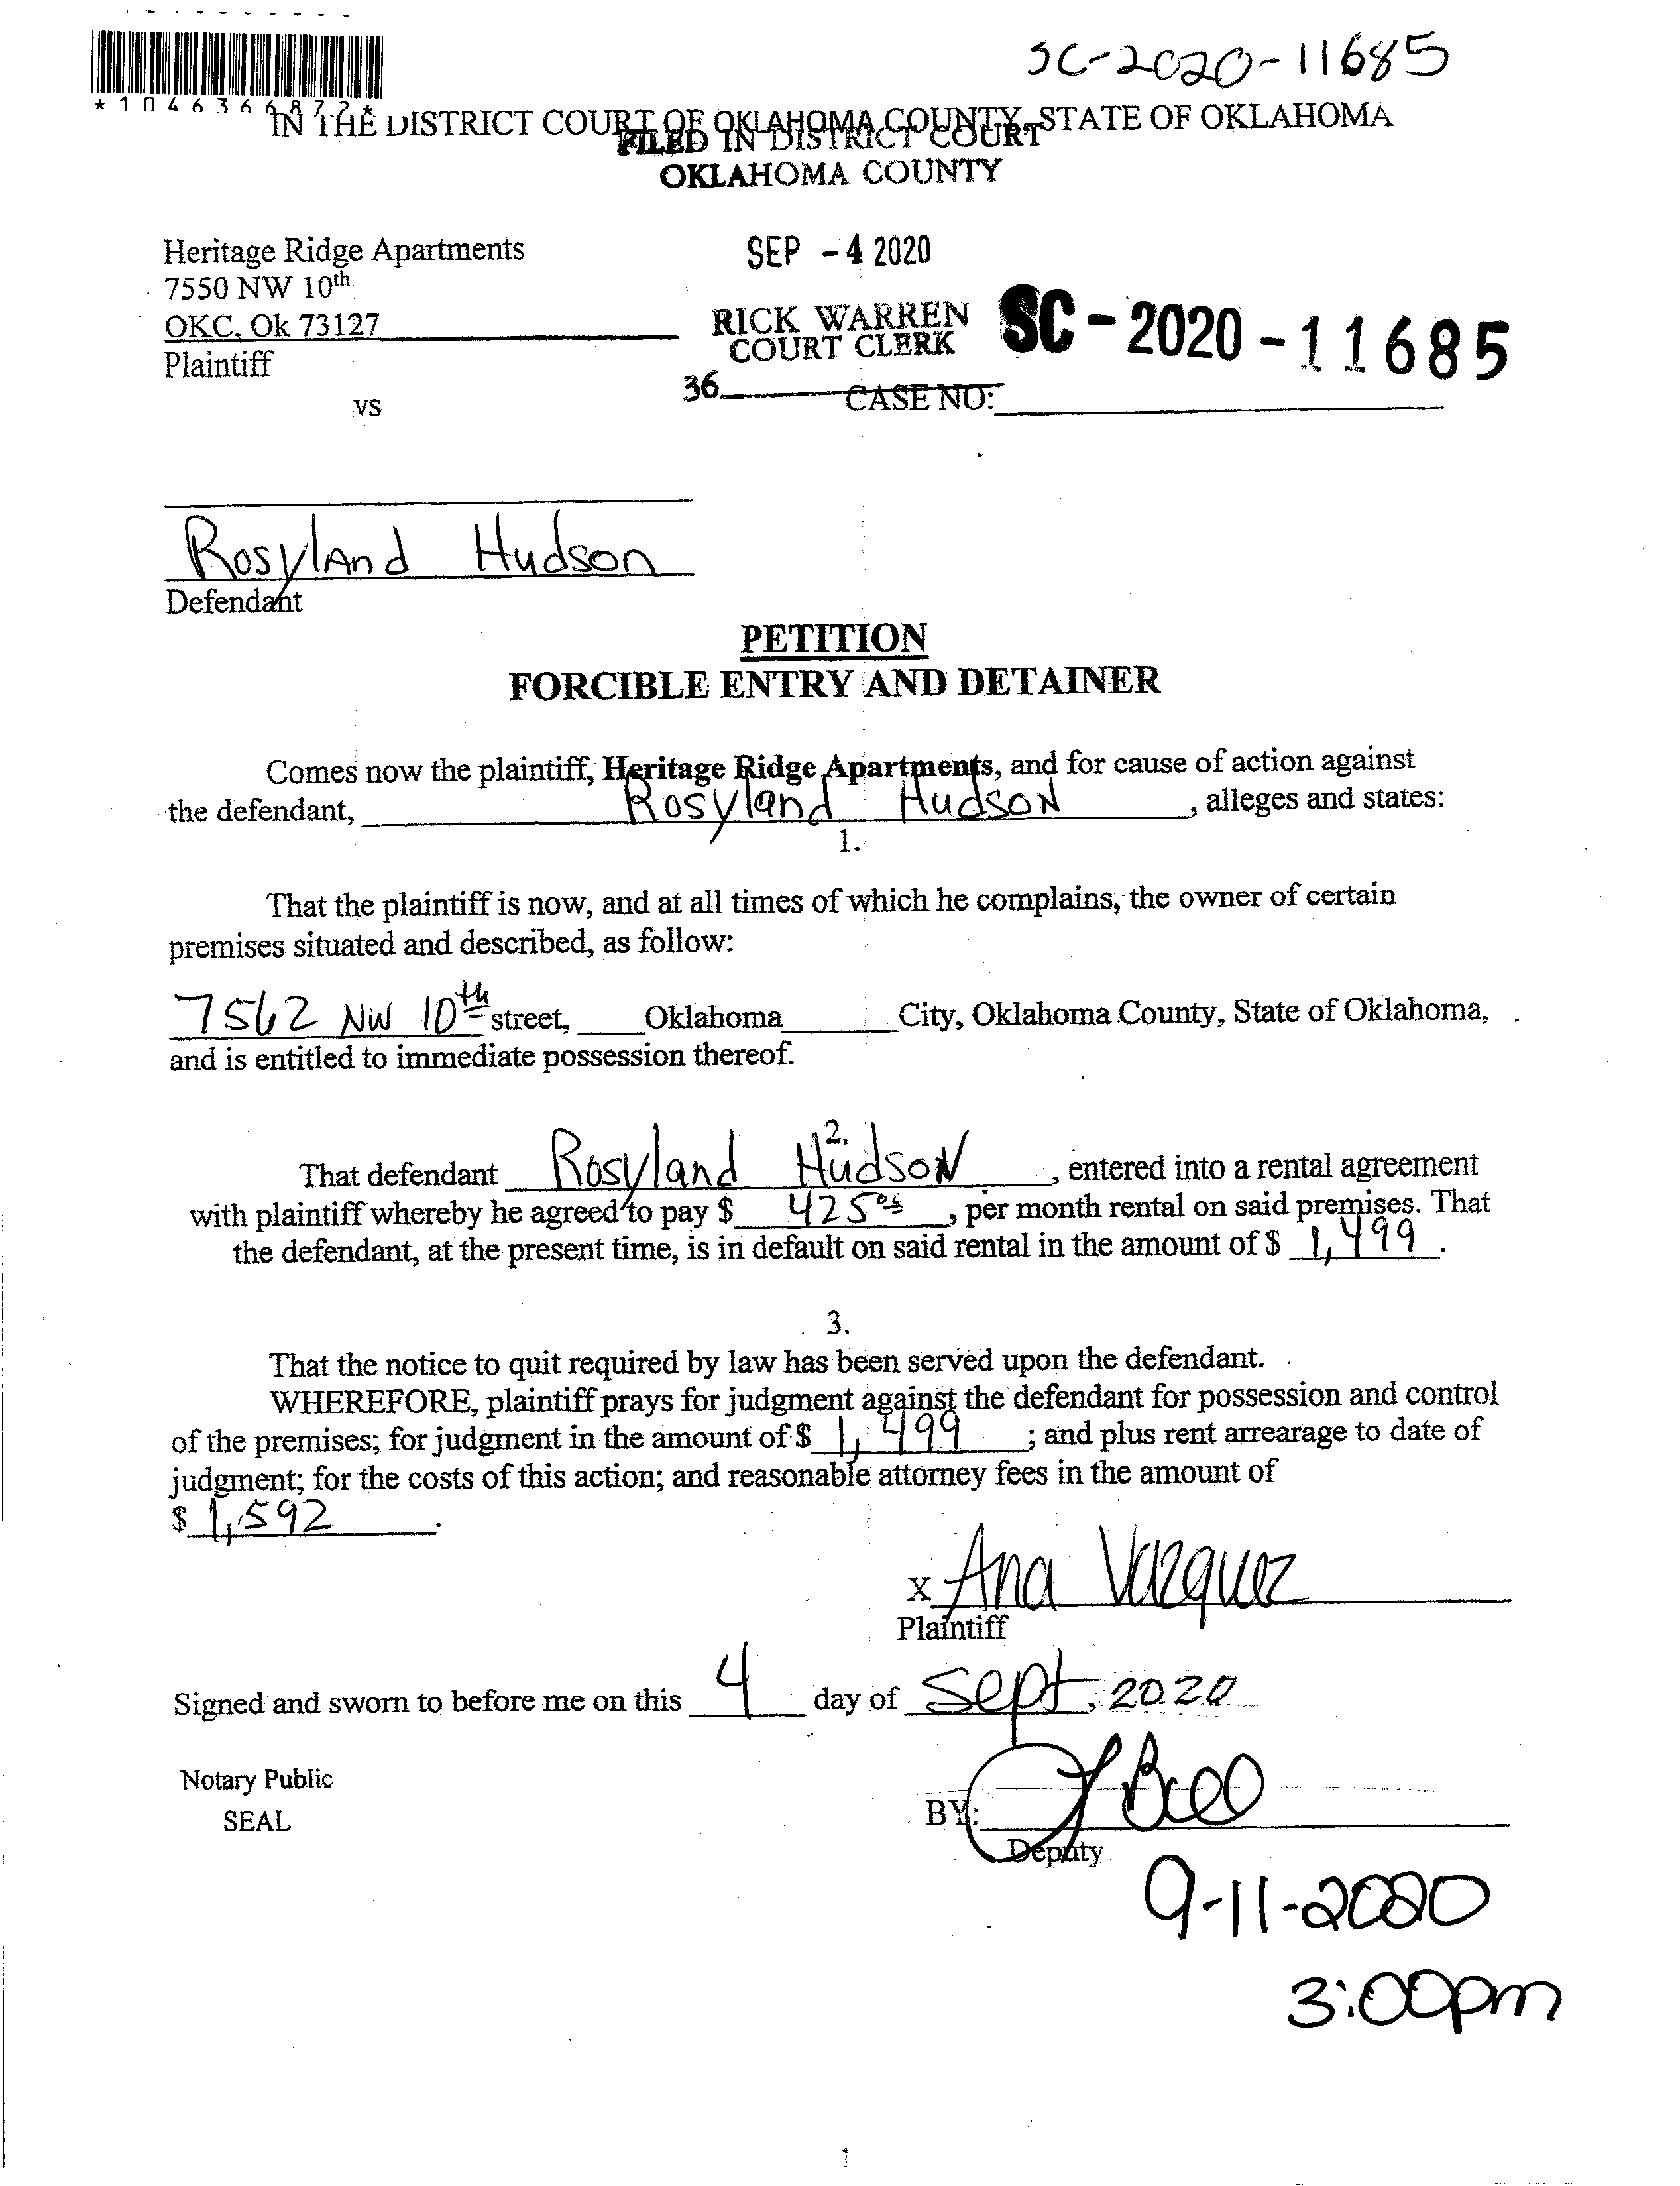 SC-2020-11685
*1046366872*
IN THE DISTRICT COURT OF OKLAHOMA COUNTY, STATE OF OKLAHOMA
FILED IN DISTRICT COURT
OKLAHOMA COUNTY
Heritage Ridge Apartments
SEP -4 2020
7550 NW 10th
OKC. Ok 73127
RICK WARREN
SC-2020-11685
Plaintiff
COURT CLERK
36
CASE NO:
vs
Rosyland Hudson
Defendant
PETITION
FORCIBLE ENTRY AND DETAINER
Comes now the plaintiff, Heritage Ridge Apartments, and for cause of action against
the defendant, Rosyland Hudson, alleges and states:
1.
That the plaintiff is now, and at all times of which he complains, the owner of certain
premises situated and described, as follow:
7562 NW 10th street, Oklahoma City, Oklahoma County, State of Oklahoma,
and is entitled to immediate possession thereof.
2.
That defendant Rosyland Hudson, entered into a rental agreement
with plaintiff whereby he agreed to pay $ 425 00, per month rental on said premises. That
the defendant, at the present time, is in default on said rental in the amount of $ 1,499.
3.
That the notice to quit required by law has been served upon the defendant.
WHEREFORE, plaintiff prays for judgment against the defendant for possession and control
of the premises; for judgment in the amount of $ 1,499; and plus rent arrearage to date of
judgment; for the costs of this action; and reasonable attorney fees in the amount of
$ 1,592.
X Ana Vazquez
Plaintiff
Signed and sworn to before me on this 4 day of Sept, 2020
Notary Public
SEAL
BY:
Deputy
9-11-2020
3:00pm
1